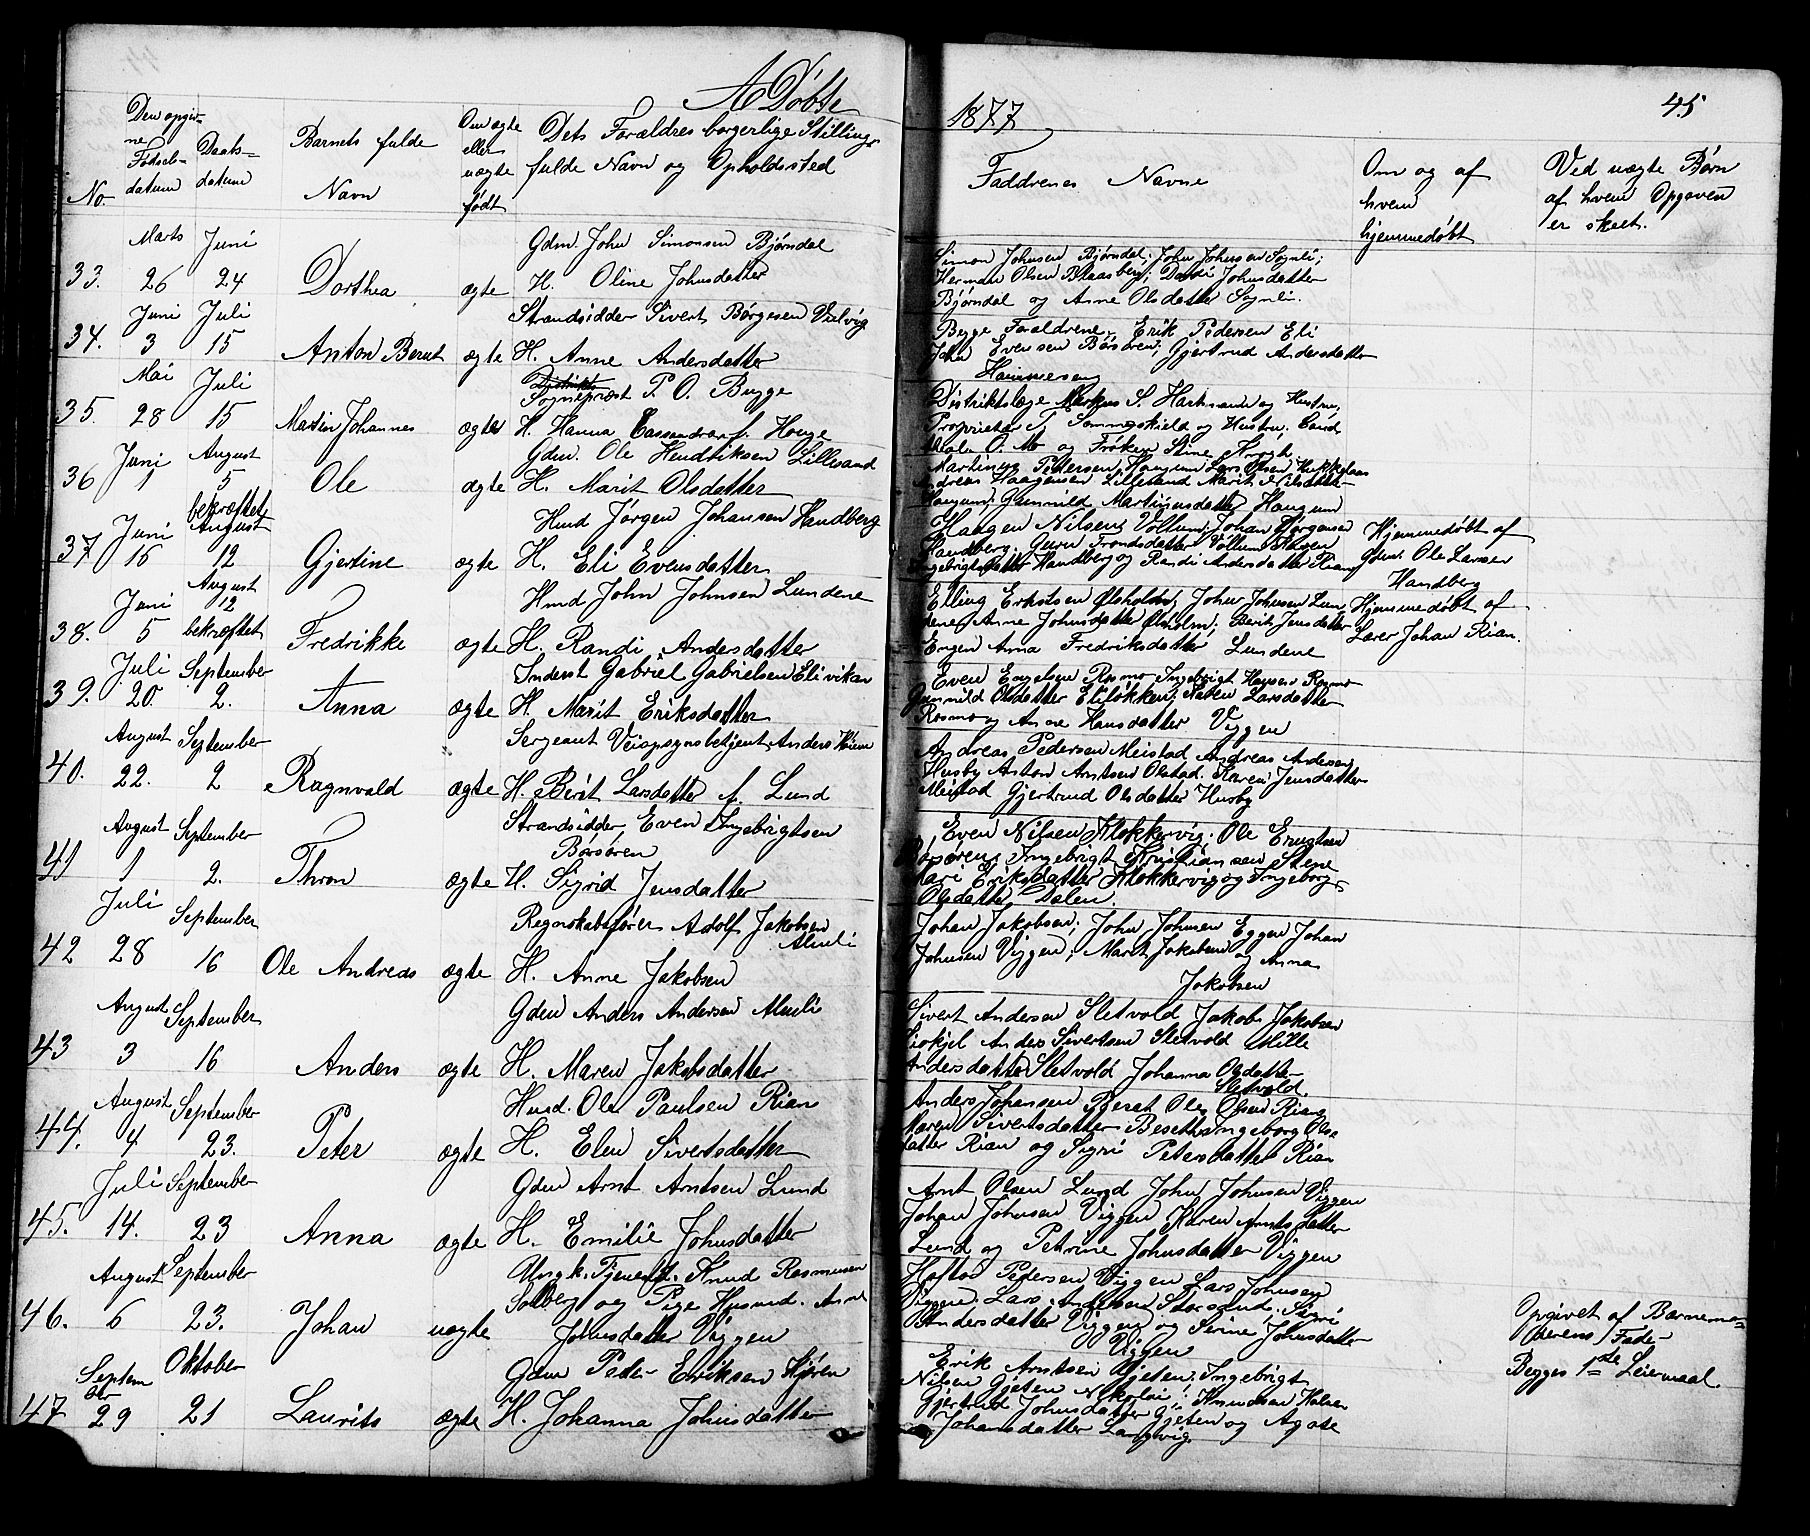 A Døbte
1877
45
No.
Den opgiv-
ne
Fødsels-
datum
Daabs-
datum
Barnets fulde
Navn
Om ægte
eller
uægte
født
Dets Forældres borgerlige Stilling,
fulde Navn og Opholdssted
Faddrenes Navne
Om og af
hvem
hjemmedøbt
Ved uægte Børn
af hvem Opgaven
er skeet.
Marts Juni
Gdm. John Simonsen Bjørndal
33. 26 24 Dorthea ægte H. Oline Johnsdatter
Simon Johnsen Bjørndal; John Johnsen Sognli;
Herman Olsen Blaasberg; Johnsdatter
Bjørndal og Anne Olsdatter Sognli.
Juni Juli
Strandsidder Sivert Børgesen Viulvig
34. 3 15 Anton Bernt ægte H. Anne Andersdatter
Begge Forældrene, Erik Pedersen Eli
John Evensen Børsøren; Gjertrud Andersdatter
Hammeseng
Mai Juli
Sognepræst P. O. Bugge
35. 28 15 Martin Johannes ægte H. Hanna Cassandra f. Houge
Distriktslæge Markus S. Hartmann og Hustru,
Proprietær T. Tommeskield og Hustru, Cand.
O. Mo og Frøken Stine Krogh.
Juni August
Gdm. Ole Hendriksen Lillesand
36 1 5 Ole ægte H. Marit Olsdatter
Martinus Pedersen Haugum Lars Olsen
Andreas Haagensen Lillesand Marit Nilsdatter
Haugum; Gunnild Martinusdatter Haugum
bekræftet
Juni August
Hmd Jørgen Johansen Handberg
37 16 12 Gjertine ægte H. Eli Evensdatter
Haagen Nilsen Vollum; Johan Jørgensen
Handberg; Guru Trondsdatter Vollum;
Ingebrigtsdatter Handberg og Randi Andersdatter Rian
Hjemmedøbt af
Gdm. Ole Larsen
Handberg
Juni August
12
Hmd John Johnsen Lundene
38. 5 bekræftet Fredrikke ægte H. Randi Andersdatter
Elling Eriksen Øsholm; John Johnsen Lun
dene, Anne Johnsdatter Øsholm; Berit Jensdatter
Engen Anna Fredriksdatter Lundene
Hjemmedøbt af
Lærer Johan Rian.
Juli September
Inderst Gabriel Gabrielsen Elivikan
39. 20. 2. Anna ægte H. Marit Eriksdatter
Even Engelsen Rosmo Ingebrigt Hansen Rosmo
Gunnild Olsdatter Eliløkken; Larsdatter
Rosmo og Anne Hansdatter Viggen
August September
Sergeant Veiopsynsbetjent Anders
40. 22. 2 Ragnvald ægte H. Berit Larsdatter f. Lund
Andreas Pedersen Meistad Andreas Andersen
Husby Anton Arntsen Olstad. Karen Jensdatter
Meistad Gjertrud Olsdatter Husby
August September
Strandsidder, Even Ingebrigtsen
Børsøren
41 1 2. Thron ægte H. Sigrid Jensdatter
Even Nilsen Klokkervig; Ole Erugtsen
Børsøren; Ingebrigt Kristiansen Stene
Mari Eriksdatter Klokkervig og Ingeborg
Olsdatter Dalen.
Juli September
Regnskabsfører Adolf Jakobsen
Almli
42 28 16 Ole Andreas ægte H. Anne Jakobsen
Johan Jakobsen; John Johnsen Eggen Johan
Johnsen Viggen; Marit Jakobsen og Anna
Jakobsen
August September
Gdm Anders Andersen Almli
43 3 16 Anders ægte H. Maren Jakobsdatter
Sivert Andersen Sletvold Jakob Jakobsen
Anders Sivertsen Sletvold Mille
Andersdatter Sletvold Johanna Olsdatter
Sletvold.
August September
Hmd. Ole Paulsen Rian
44. 4 23. Peter ægte H. Elen Sivertsdatter
Anders Johansen Ole Olsen Rian
Maren Sivertsdatter Beseth Ingeborg Ols=
datter Rian og Sigri Petersdatter Rian
Juli September
Gdm Arnt Arntsen Lund
45. 14. 23 Anna ægte H. Emilie Johnsdatter
Arnt Olsen Lund John Johnsen Viggen
Johan Johnsen Viggen Karen Arntsdatter
Lund og Petrine Johnsdatter Viggen
August September
Ungk. Tjenend. Knud Rasmusen
Solberg og Pige Husmd. Anne
46. 6 23. Johan uægte Johnsdatter Viggen
Haftor Pedersen Viggen Lars Johnsen
Viggen. Lars Andersen Storsand. Sigri
Andersdatter Viggen og Serine Johnsdatter
Viggen
Opgivet af Barnemo=
derens Fader
Begges 1ste Leiermaal.
Septem
ber Oktober
Gdm Peder Eriksen Hjøren
47 29 21 Laurits ægte H. Johanna Johnsdatter
Erik Arntsen Gjeten; Ingebrigt
Nilsen Gjeten Nikolai Knudsen
Gjertrud Johnsdatter Gjeten og Agate
Johansdatter Langvig.